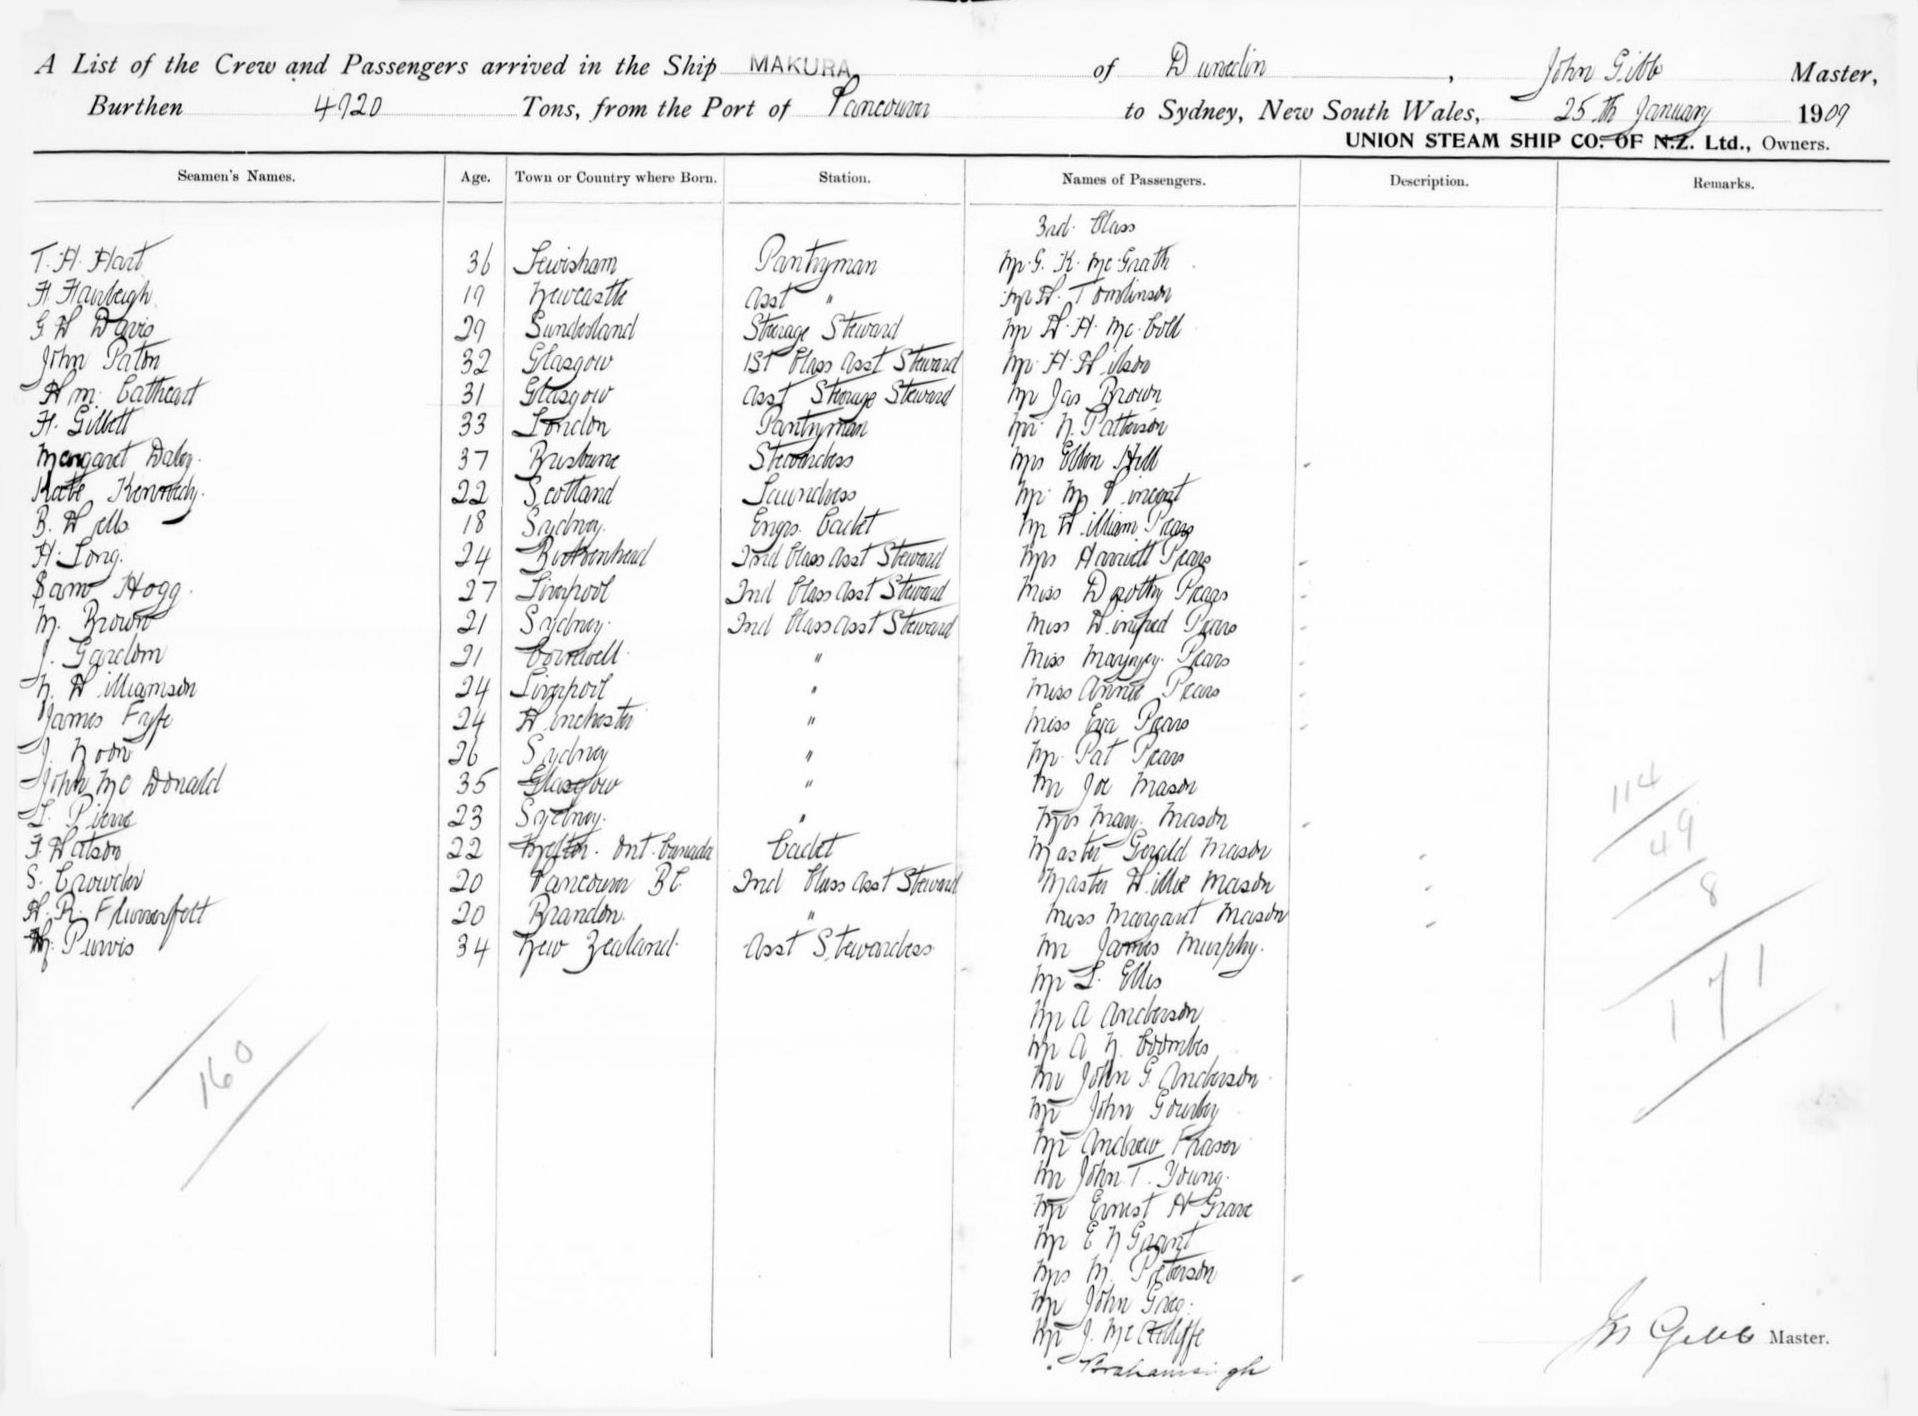 A List of the Crew and Passengers arrived in the Ship MAKURA of Dunedin, John Gibb Master,
Burthen 4920 Tons, from the Port of Vancouver to Sydney, New South Wales, 25th January 1909
UNION STEAM SHIP CO. OF N.Z. Ltd., Owners.
Seamen's Names. Age. Town or Country where Born. Station. Names of Passengers. Description. Remarks.
3rd. Class
T. H. Hart 36 Lewisham Pantryman Mr. G. K. McGrath
19 Newcastle Asst " Mr W. Tomlinson
G W Davis 29 Sunderland Steerage Steward Mr W. H. McColl
John Paton 32 Glasgow 1st Class Asst Steward Mr. H. Wilson
Wm. Cathcart 31 Glasgow Asst Steerage Steward Mr Jas Brown
H. Gillett 33 London Pantryman Mr. N. Patterson
Margaret Daley. 37 Brisbane Stewardess Mrs Ellen Hill
Kate Kennedy. 22 Scotland Laundress Mr. M. Vincent
B. Wells 18 Sydney. Engrs. Cadet Mr William Pears
H. Long. 24 Birkenhead 2nd Class Asst Steward Mrs Harriett Pears
Sam Hogg. 27 Liverpool 2nd Class Asst Steward Miss Dorothy Pears
M. Brown 21 Sydney. 2nd Class Asst Steward Miss Winifred Pears
J. Gardom 21 " Miss Pears
N. Williamson 24 Liverpool " Miss Annie Pears
James Fyfe 24 Winchester " Miss Eva Pears
J. Noon 26 Sydney " Mr. Pat Pears
John McDonald 35 Glasgow " Mr Joe Mason
L. Pierre 23 Sydney. " Mrs Mary. Mason
F. Watson 22 Ont. Canada Cadet Master Gerald Mason
S. Crowder 20 Vancouver BC. 2nd Class Asst Steward Master Willie Mason
W. R. Flumerfelt 20 Brandon. " Miss Margaret Mason
M. Purvis 34 New Zealand. Asst Stewardess Mr James Murphy.
Mr L. Ellis
Mr A Anderson
Mr A N. Coombes
Mr John G. Anderson
Mr John Gourley
Mr Andrew Fraser
Mr John T. Young.
Mr Ernest W Grave
Mr E N Grant
Mrs M. Peterson
Mr John Greg.
Mr J. McAuliffe
160
114
49
8
171
Jn Gibb Master.